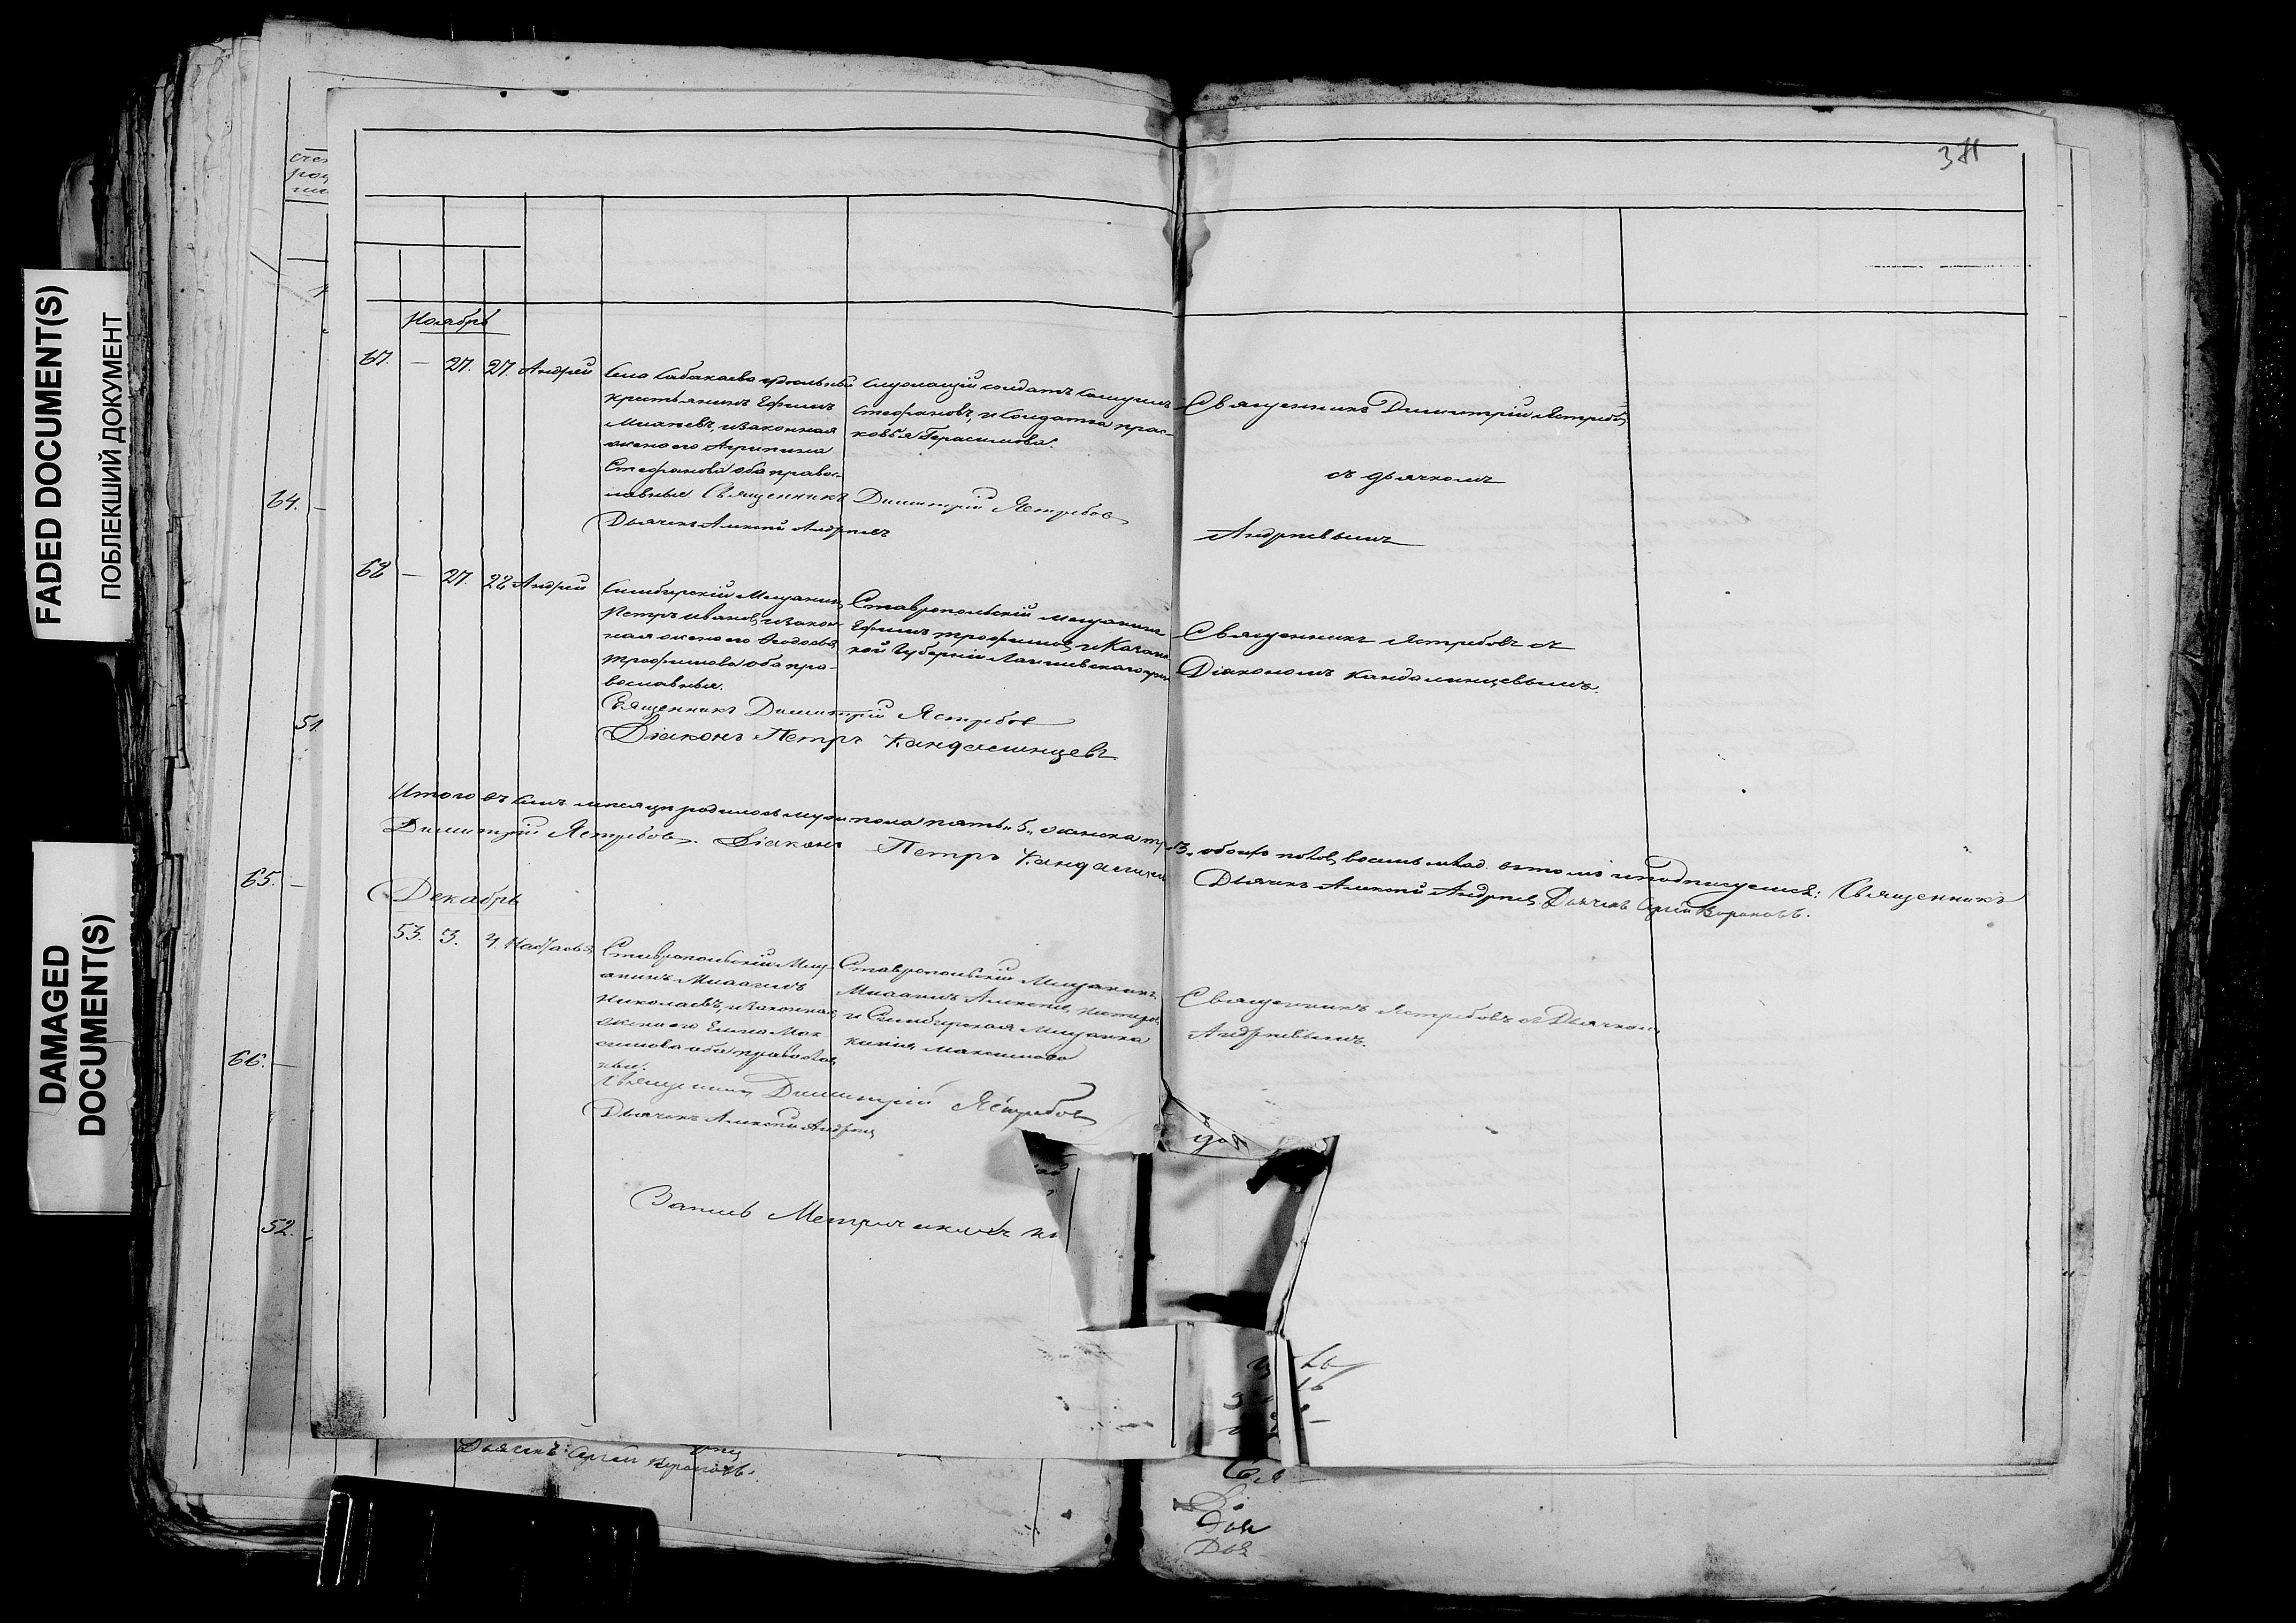 FADED DOCUMENT(S)
ПОБЛЕКШИЙ ДОКУМЕНТ
DAMAGED
DOCUMENT(S)
64.
51.
65.
66.
52.
Ноябрь
67. — 27. 27. Андрей
Села Сабакаева удѣльный
крестьянинъ Ефимъ
и законная
жена его Агрипина
Стефанова оба право-
славные Священникъ Димитрій Ястребов
Дьячекъ Алексѣй Андреевъ
служащій солдатъ
Стефановъ, и Солдатка Прас-
ковья Герасимова.
Священникъ Димитрій Ястребовъ
съ дьячкомъ
Андреевымъ
68 — 27. 28 Андрей
Симбирскій Мещанинъ
Петръ Ивановъ, и закон-
ная жена его Ѳеодосья
Трофимова оба пра-
вославные.
Священникъ Димитрій Ястребов
Діаконъ Петръ Кандалинцевъ
Ставропольскій мещанинъ
Ефимъ Трофимовъ, и Казанс-
кой Губерніи Лаишевскаго
Священникъ Ястребовъ съ
Діакономъ Кандалинцевымъ.
Итого въ семъ мѣсяцѣ родилось муж. пола пять „5„ а женска три „3„ обоихъ половъ восемь въ томъ и подписуемся: Священникъ
Димитрій Ястребов. Діаконъ Петръ Кандалинцев Дьячекъ Алексѣй Андреевъ Дьячекъ Сергѣй Вороновъ.
Декабрь
53. 3. 4. Настасья
Ставропольскій Мещ-
анинъ Михаилъ
Николаевъ, и законная
жена его Елена Мак
симова оба православ
ные.
Священникъ Димитрій Ястребов
Дьячекъ Алексѣй Андреев
Ставропольскій Мещанинъ
Михаилъ Алексѣев,
и Симбирская Мещанка
Максимова
Священникъ Ястребовъ съ Дьячкомъ
Андреевымъ.
Запись Метрическихъ кн
Дьячекъ Сергѣй Вороновъ.
Дья